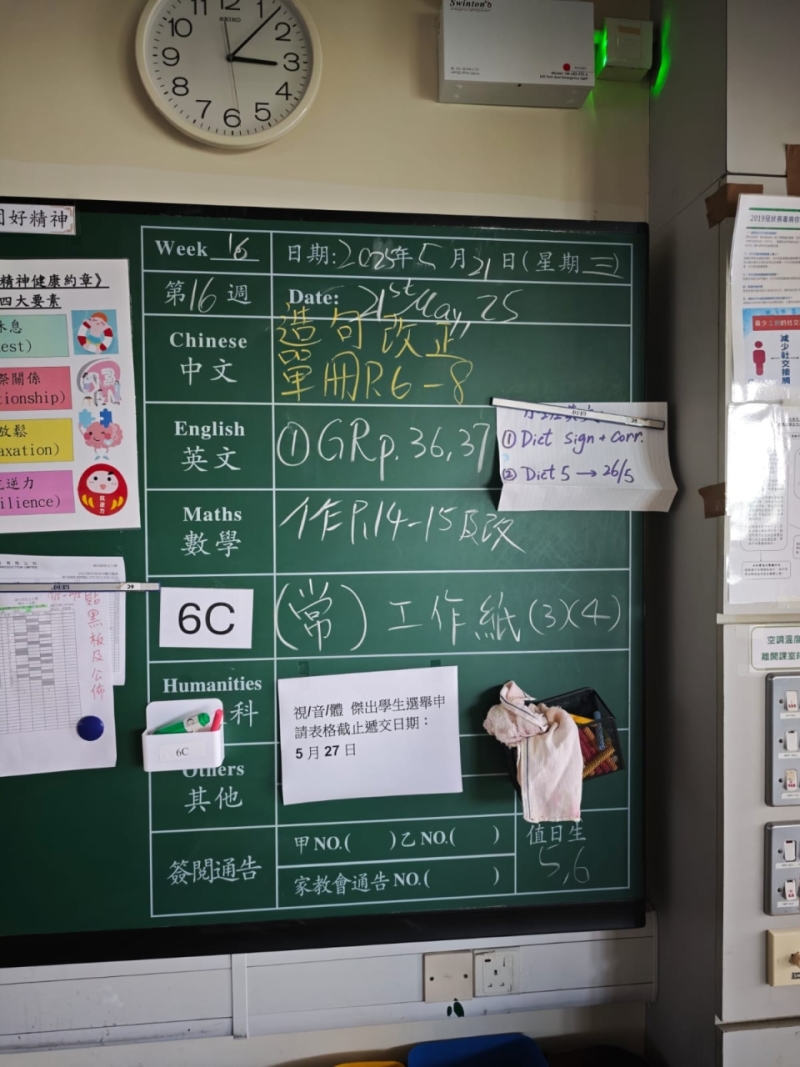 12
1
2
3
4
5
6
7
8
9
10
11
SEIKO
Swinton's
好精神
Week 16
日期:2025年5月21日(星期三)
第16週
Date: 21st May, 25
Chinese
中文
造句改正
單冊P.6-8
English
英文
①GRp.36,37
① Dict sign + corr.
② Dict 5 → 26/5
Maths
數學
作P.14-15及改
6C
(常) 工作紙(3)(4)
Humanities
科
視/音/體 傑出學生選舉申
請表格截止遞交日期：
5 月 27 日
6C
Others
其他
簽閱通告
甲NO.( )乙NO.( )
家教會通告NO.( )
值日生
5,6
精神健康約章》
四大要素
休息
est)
係關係
tionship)
放鬆
axation)
逆力
ilience)
貼黑板及公佈
減少社交接觸
空調溫度
離開課室